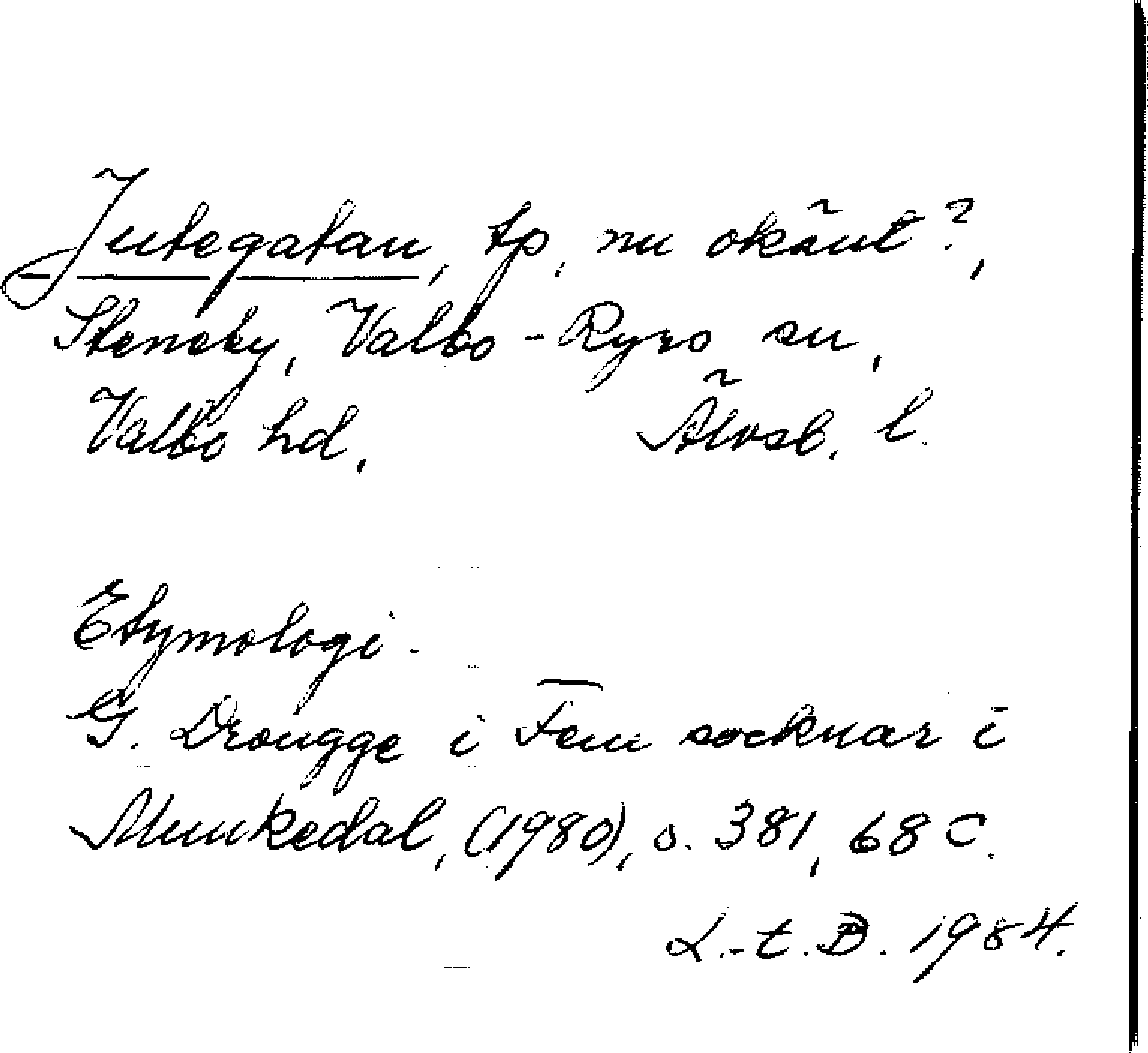 Jutegatan, tp, nu okänt?,
Steneby, Valbo-Ryrs sn,
Valbo hd, Älvsb. l.
Etymologi.
G. Drougge i Fem socknar i
Munkedal, (1980), s. 381, 68 C.
L.-t. B. 1984.